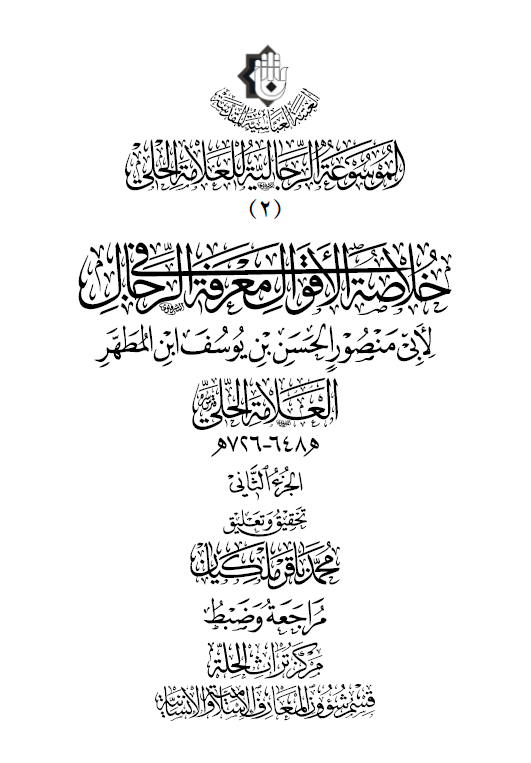 العتبة العباسية المقدسة
المَوْسُوعَةُ الرِّجَالِيَّةُ لِلْعَلَّامَةِ الحِلِّيّ
(٢)
خُلَاصَةُ الأَقْوَالِ فِي مَعْرِفَةِ الرِّجَالِ
لِأَبِيْ مَنْصُوْرٍ الحَسَنِ بْنِ يُوسُفَ ابْنِ المُطَهَّرِ
العَلَّامَةِ الحِلِّيِّ
٦٤٨-٧٢٦ه
الجُزْءُ الثَّانِيْ
تَحْقِيْقُ وَتَعْلِيْقُ
مُحَمَّد بَاقِر مَلَكِيَان
مُرَاجَعَةُ وَضَبْطُ
مَرْكَزُ تُرَاثِ الحِلَّةِ
قِسْمُ شُؤُوْنِ المَعَارِفِ الإِسْلَامِيَّةِ وَالإِنْسَانِيَّةِ